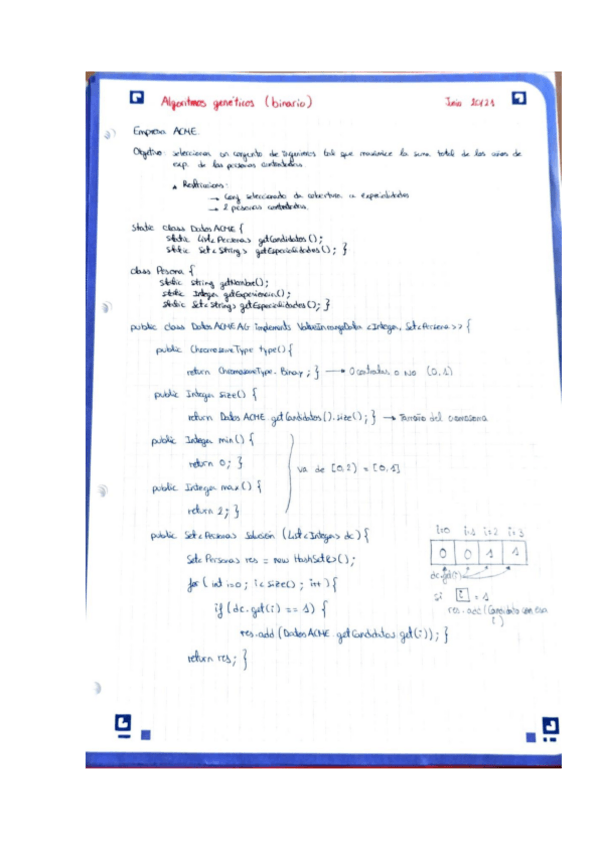 Algoritmos genéticos (binario)
Junio 20/21
Empresa ACME.
Objetivo: seleccionar un conjunto de Ingenieros tal que maximice la suma total de los años de
exp. de las personas contratadas.
Restricciones:
→ Conj seleccionado da cobertura a especialidades
→ 2 personas contratadas.
static class Datos ACME {
static List<Persona> getCandidatos ();
static Set<String> getEspecialidades (); }
class Persona {
static String getNombre();
static Integer getExperiencia();
static Set<String> getEspecialidades(); }
public class Datos ACME AG implements ValuesInRangeData <Integer, Set<Persona>> {
public ChromosomeType type() {
return ChromosomeType. Binary ; } → O contratas o No (0,1)
public Integer size() {
return Datos ACME getCandidatos().size(); } → Tamaño del cromosoma
public Integer min() {
return 0; }
va de [0,2) = [0,1]
public Integer max() {
return 2; }
public Set<Persona> Solución (List<Integer> dc) {
Set<Persona> res = new HashSet<>();
for ( int i=0 ; i<size() ; i++ ) {
if (dc.get(i) == 1) {
res.add (Datos ACME. getCandidatos.get(i)); }
return res; }
i=0 i=1 i=2 i=3
0 0 1 1
dc.get(i)
si i = 1
res.add (Candidato con esa
i )